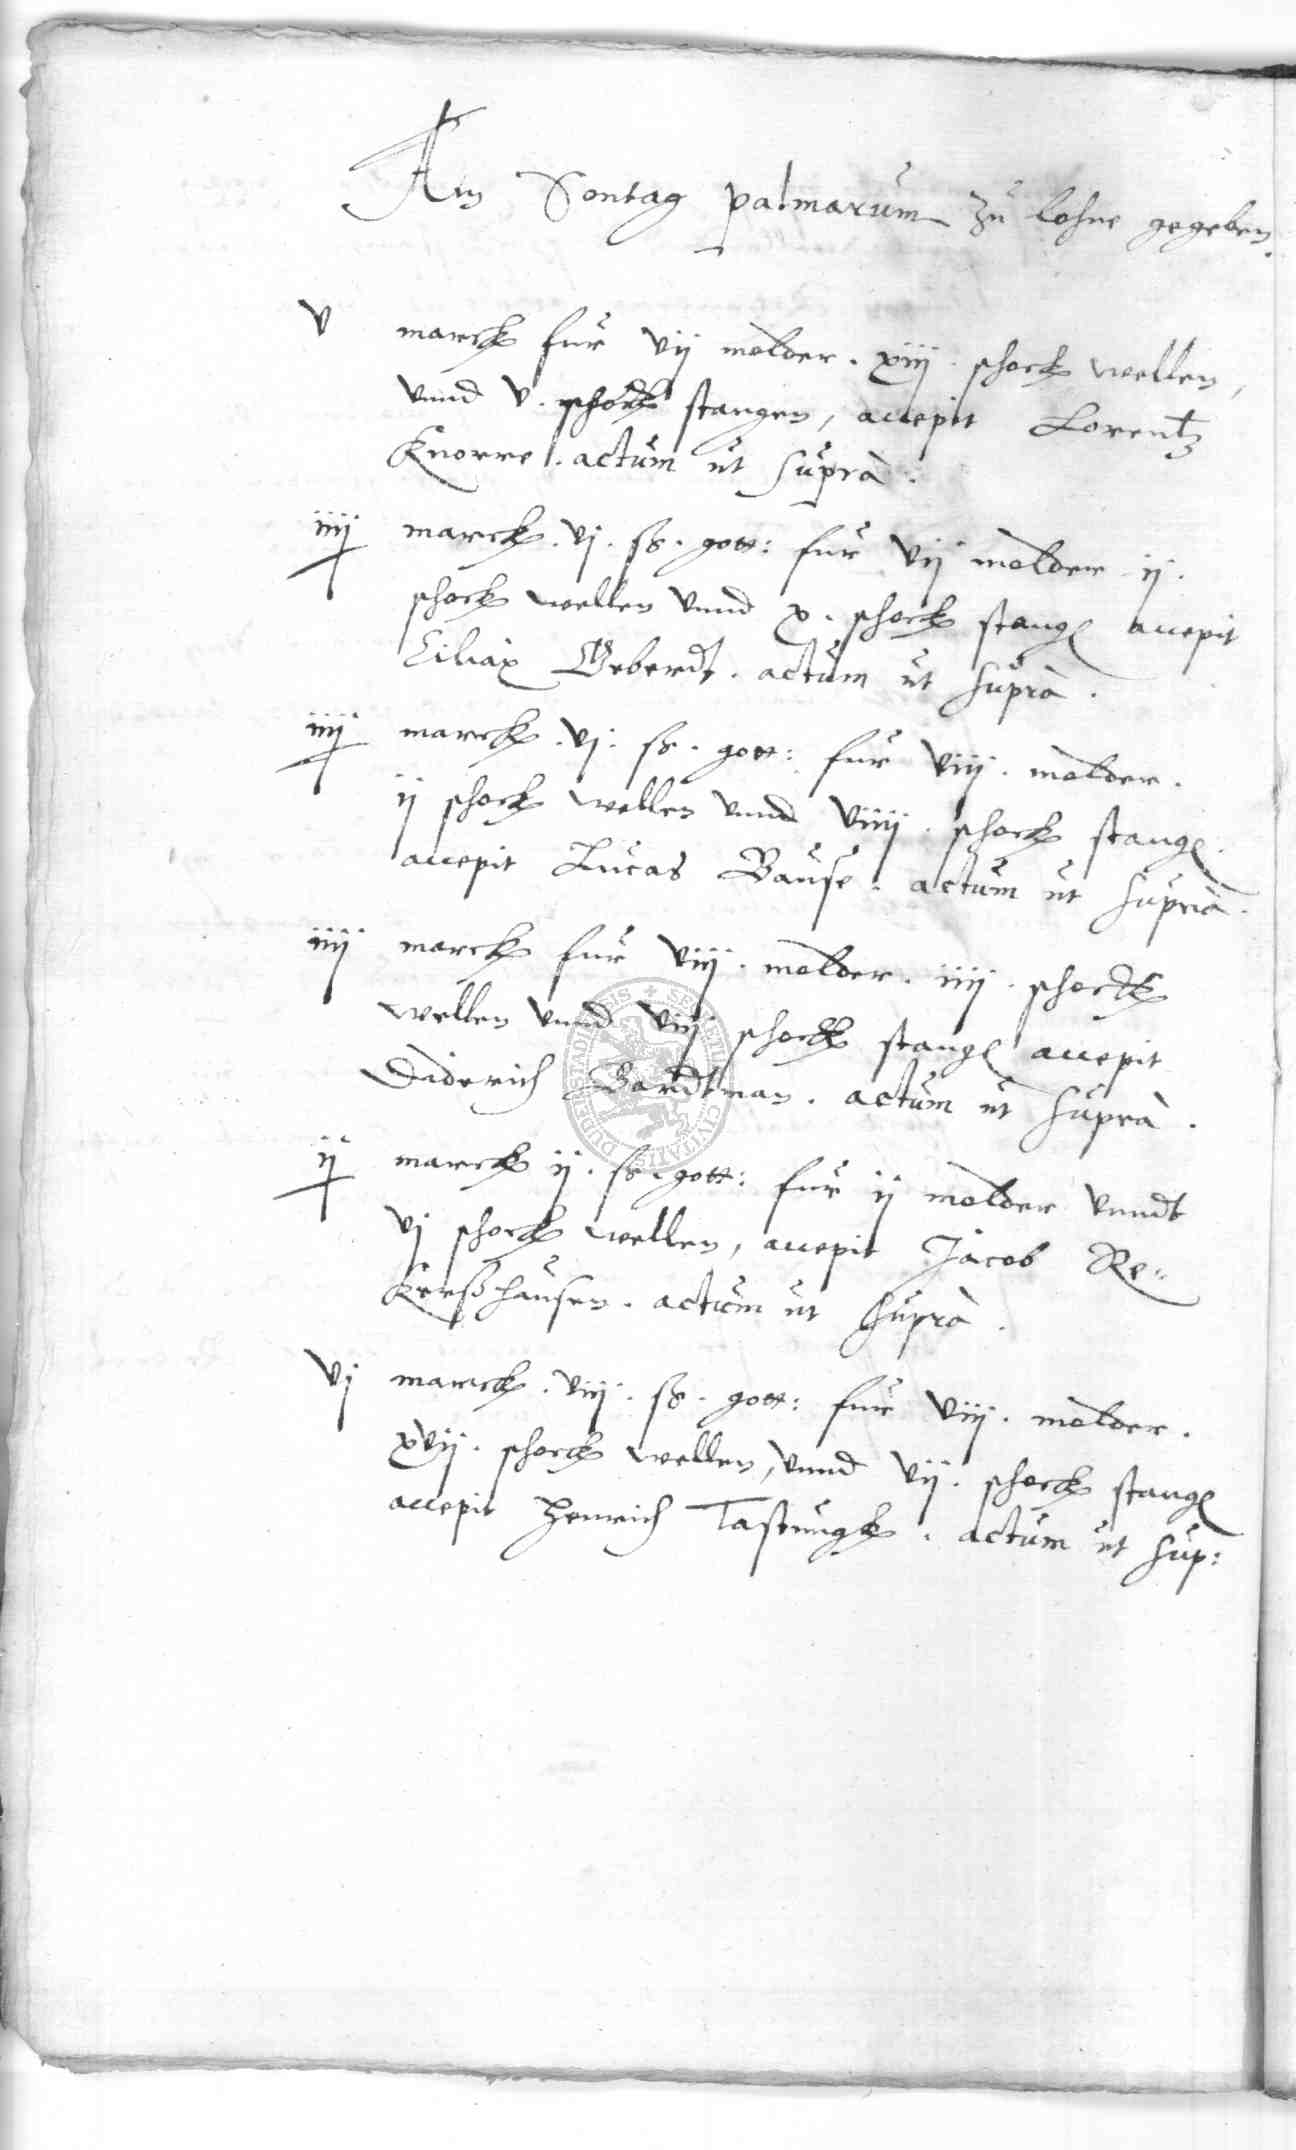 Am Sontag palmarum zu lohne gegeben.
v marck fur vij molder . xiij . schock wellen,
vnnd v . schock stangen, accepit Lorentz
Knorre . actum ut supra .
iiij marck . vj . ß . gott: fur vij molder ij .
schock wellen vnnd x . schock stang accepit
Ciliax Geberdt . actum ut supra .
iiij marck . vj . ß . gott: fur viij . molder .
ij schock wellen vnnd viiij . schock stang .
accepit Lucas Bause . actum ut supra .
iiij marck fur viij . molder . iiij . schock
wellen vnnd viij schock stang accepit
Diderich Bardtman . actum ut supra .
ij marck ij . ß . gott: fur ij molder vnndt
vj schock wellen, accepit Jacob Re=
kerßhausen . actum ut supra .
vj marck . viij . ß . gott: fur viij . molder .
xvij . schock wellen, vnnd vij . schock stang
accepit Henrich Tastungk . actum ut sup:
DUDERSTADIENSIS SECRETUM CIVITATIS